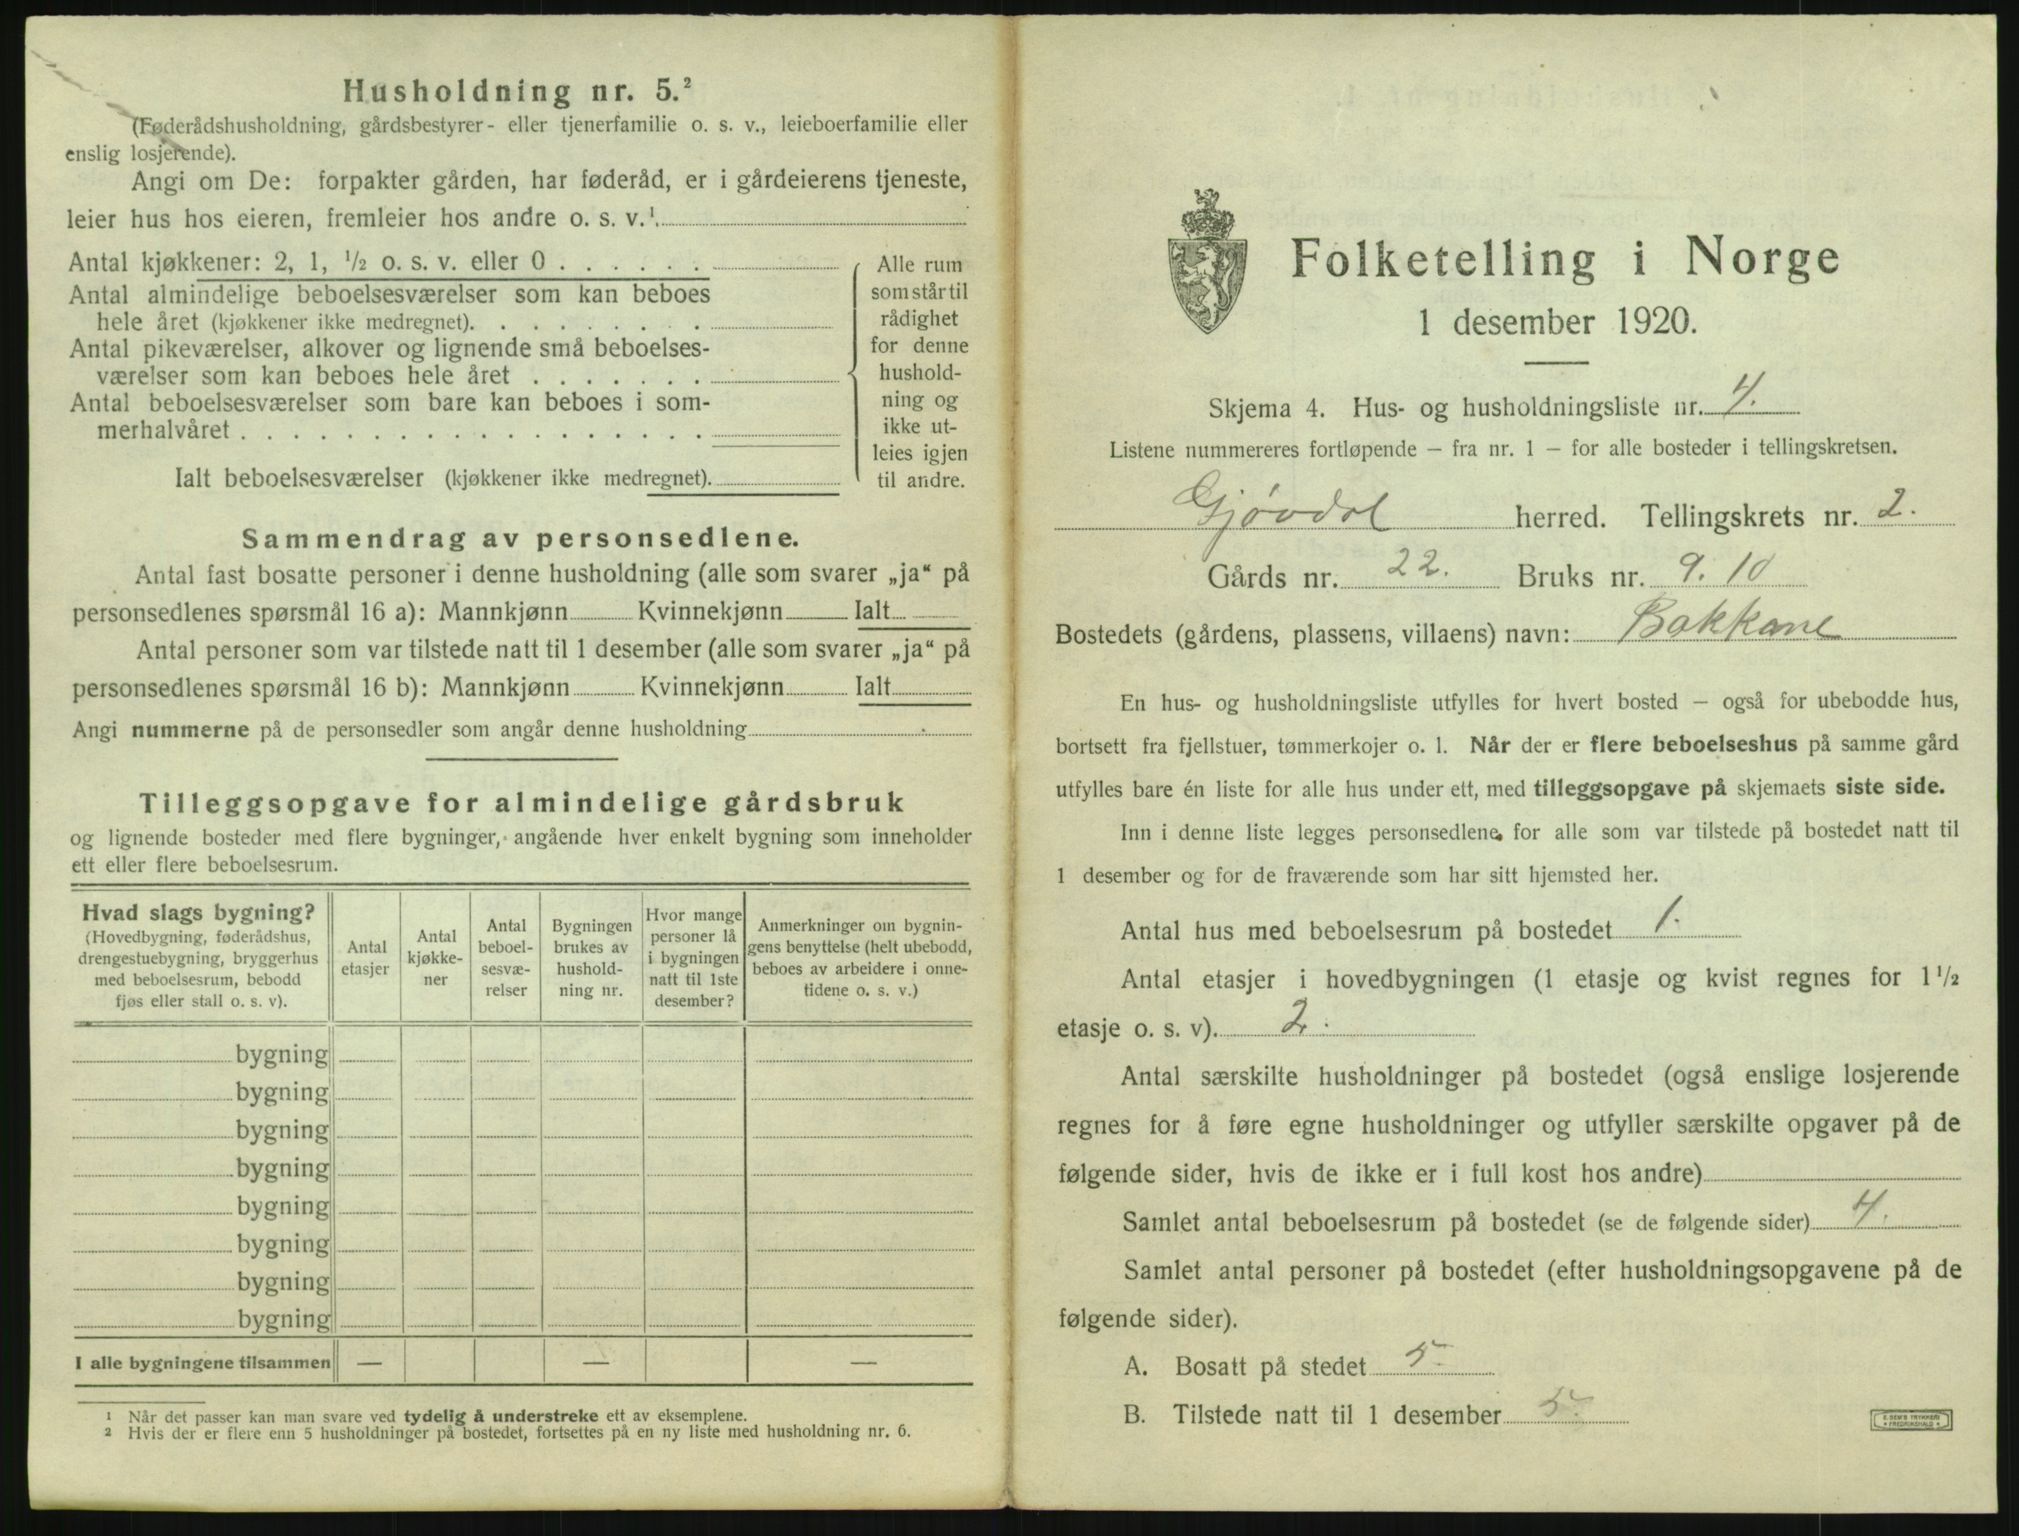 Husholdning nr. 5.²
(Føderådshusholdning, gårdsbestyrer- eller tjenerfamilie o. s. v., leieboerfamilie eller
enslig losjerende).
Angi om De: forpakter gården, har føderåd, er i gårdeierens tjeneste,
leier hus hos eieren, fremleier hos andre o. s. v.¹
Antal kjøkkener: 2, 1, ½ o. s. v. eller 0 . . . . . .
Antal almindelige beboelsesværelser som kan beboes
hele året (kjøkkener ikke medregnet). . . . . . . .
Antal pikeværelser, alkover og lignende små beboelses-
værelser som kan beboes hele året . . . . . . .
Antal beboelsesværelser som bare kan beboes i som-
merhalvåret . . . . . . . . . . . . . . . . . .
Ialt beboelsesværelser (kjøkkener ikke medregnet).
Alle rum
som står til
rådighet
for denne
hushold-
ning og
ikke ut-
leies igjen
til andre.
Sammendrag av personsedlene.
Antal fast bosatte personer i denne husholdning (alle som svarer „ja“ på
personsedlenes spørsmål 16 a): Mannkjønn Kvinnekjønn Ialt
Antal personer som var tilstede natt til 1 desember (alle som svarer „ja“ på
personsedlenes spørsmål 16 b): Mannkjønn Kvinnekjønn Ialt
Angi nummerne på de personsedler som angår denne husholdning
Tilleggsopgave for almindelige gårdsbruk
og lignende bosteder med flere bygninger, angående hver enkelt bygning som inneholder
ett eller flere beboelsesrum.
Hvad slags bygning?
(Hovedbygning, føderådshus,
drengestuebygning, bryggerhus
med beboelsesrum, bebodd
fjøs eller stall o. s. v).
Antal
etasjer
Antal
kjøkke-
ner
Antal
beboel-
sesvæ-
relser
Bygningen
brukes av
hushold-
ning nr.
Hvor mange
personer lå
i bygningen
natt til 1ste
desember?
Anmerkninger om bygnin-
gens benyttelse (helt ubebodd,
beboes av arbeidere i onne-
tidene o. s. v.)
bygning
bygning
bygning
bygning
bygning
bygning
bygning
bygning
I alle bygningene tilsammen — — —
¹ Når det passer kan man svare ved tydelig å understreke ett av eksemplene.
² Hvis der er flere enn 5 husholdninger på bostedet, fortsettes på en ny liste med husholdning nr. 6.
Folketelling i Norge
1 desember 1920.
Skjema 4. Hus- og husholdningsliste nr. 4.
Listene nummereres fortløpende — fra nr. 1 — for alle bosteder i tellingskretsen.
Gjøvdal herred. Tellingskrets nr. 2.
Gårds nr. 22. Bruks nr. 9. 10
Bostedets (gårdens, plassens, villaens) navn: Bakkane
En hus- og husholdningsliste utfylles for hvert bosted — også for ubebodde hus,
bortsett fra fjellstuer, tømmerkojer o. l. Når der er flere beboelseshus på samme gård
utfylles bare én liste for alle hus under ett, med tilleggsopgave på skjemaets siste side.
Inn i denne liste legges personsedlene for alle som var tilstede på bostedet natt til
1 desember og for de fraværende som har sitt hjemsted her.
Antal hus med beboelsesrum på bostedet 1.
Antal etasjer i hovedbygningen (1 etasje og kvist regnes for 1½
etasje o. s. v). 2.
Antal særskilte husholdninger på bostedet (også enslige losjerende
regnes for å føre egne husholdninger og utfyller særskilte opgaver på de
følgende sider, hvis de ikke er i full kost hos andre)
Samlet antal beboelsesrum på bostedet (se de følgende sider) 4.
Samlet antal personer på bostedet (efter husholdningsopgavene på de
følgende sider).
A. Bosatt på stedet 5.
B. Tilstede natt til 1 desember 5.
E. SEM'S TRYKKERI
* FREDRIKSHALD *